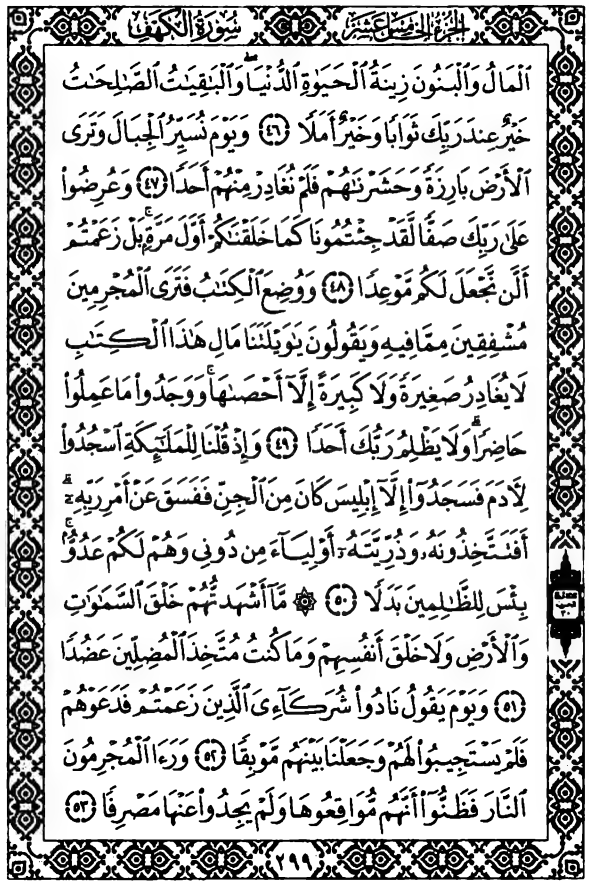 الجزء الخامس عشر
سورة الكهف
ٱلْمَالُ وَٱلْبَنُونَ زِينَةُ ٱلْحَيَوٰةِ ٱلدُّنْيَا ۖ وَٱلْبَٰقِيَٰتُ ٱلصَّٰلِحَٰتُ
خَيْرٌ عِندَ رَبِّكَ ثَوَابًا وَخَيْرٌ أَمَلًا ٤٦ وَيَوْمَ نُسَيِّرُ ٱلْجِبَالَ وَتَرَى
ٱلْأَرْضَ بَارِزَةً وَحَشَرْنَٰهُمْ فَلَمْ نُغَادِرْ مِنْهُمْ أَحَدًا ٤٧ وَعُرِضُوا۟
عَلَىٰ رَبِّكَ صَفًّا لَّقَدْ جِئْتُمُونَا كَمَا خَلَقْنَٰكُمْ أَوَّلَ مَرَّةٍۭ ۚ بَلْ زَعَمْتُمْ
أَلَّن نَّجْعَلَ لَكُم مَّوْعِدًا ٤٨ وَوُضِعَ ٱلْكِتَٰبُ فَتَرَى ٱلْمُجْرِمِينَ
مُشْفِقِينَ مِمَّا فِيهِ وَيَقُولُونَ يَٰوَيْلَتَنَا مَالِ هَٰذَا ٱلْكِتَٰبِ
لَا يُغَادِرُ صَغِيرَةً وَلَا كَبِيرَةً إِلَّآ أَحْصَىٰهَا ۚ وَوَجَدُوا۟ مَا عَمِلُوا۟
حَاضِرًا ۗ وَلَا يَظْلِمُ رَبُّكَ أَحَدًا ٤٩ وَإِذْ قُلْنَا لِلْمَلَٰٓئِكَةِ ٱسْجُدُوا۟
لِءَادَمَ فَسَجَدُوٓا۟ إِلَّآ إِبْلِيسَ كَانَ مِنَ ٱلْجِنِّ فَفَسَقَ عَنْ أَمْرِ رَبِّهِۦٓ ۗ
أَفَتَتَّخِذُونَهُۥ وَذُرِّيَّتَهُۥٓ أَوْلِيَآءَ مِن دُونِى وَهُمْ لَكُمْ عَدُوٌّۢ ۚ
بِئْسَ لِلظَّٰلِمِينَ بَدَلًا ٥٠ ۞ مَّآ أَشْهَدتُّهُمْ خَلْقَ ٱلسَّمَٰوَٰتِ
وَٱلْأَرْضِ وَلَا خَلْقَ أَنفُسِهِمْ وَمَا كُنتُ مُتَّخِذَ ٱلْمُضِلِّينَ عَضُدًا
٥١ وَيَوْمَ يَقُولُ نَادُوا۟ شُرَكَآءِىَ ٱلَّذِينَ زَعَمْتُمْ فَدَعَوْهُمْ
فَلَمْ يَسْتَجِيبُوا۟ لَهُمْ وَجَعَلْنَا بَيْنَهُم مَّوْبِقًا ٥٢ وَرَءَا ٱلْمُجْرِمُونَ
ٱلنَّارَ فَظَنُّوٓا۟ أَنَّهُم مُّوَاقِعُوهَا وَلَمْ يَجِدُوا۟ عَنْهَا مَصْرِفًا ٥٣
٢٩٩